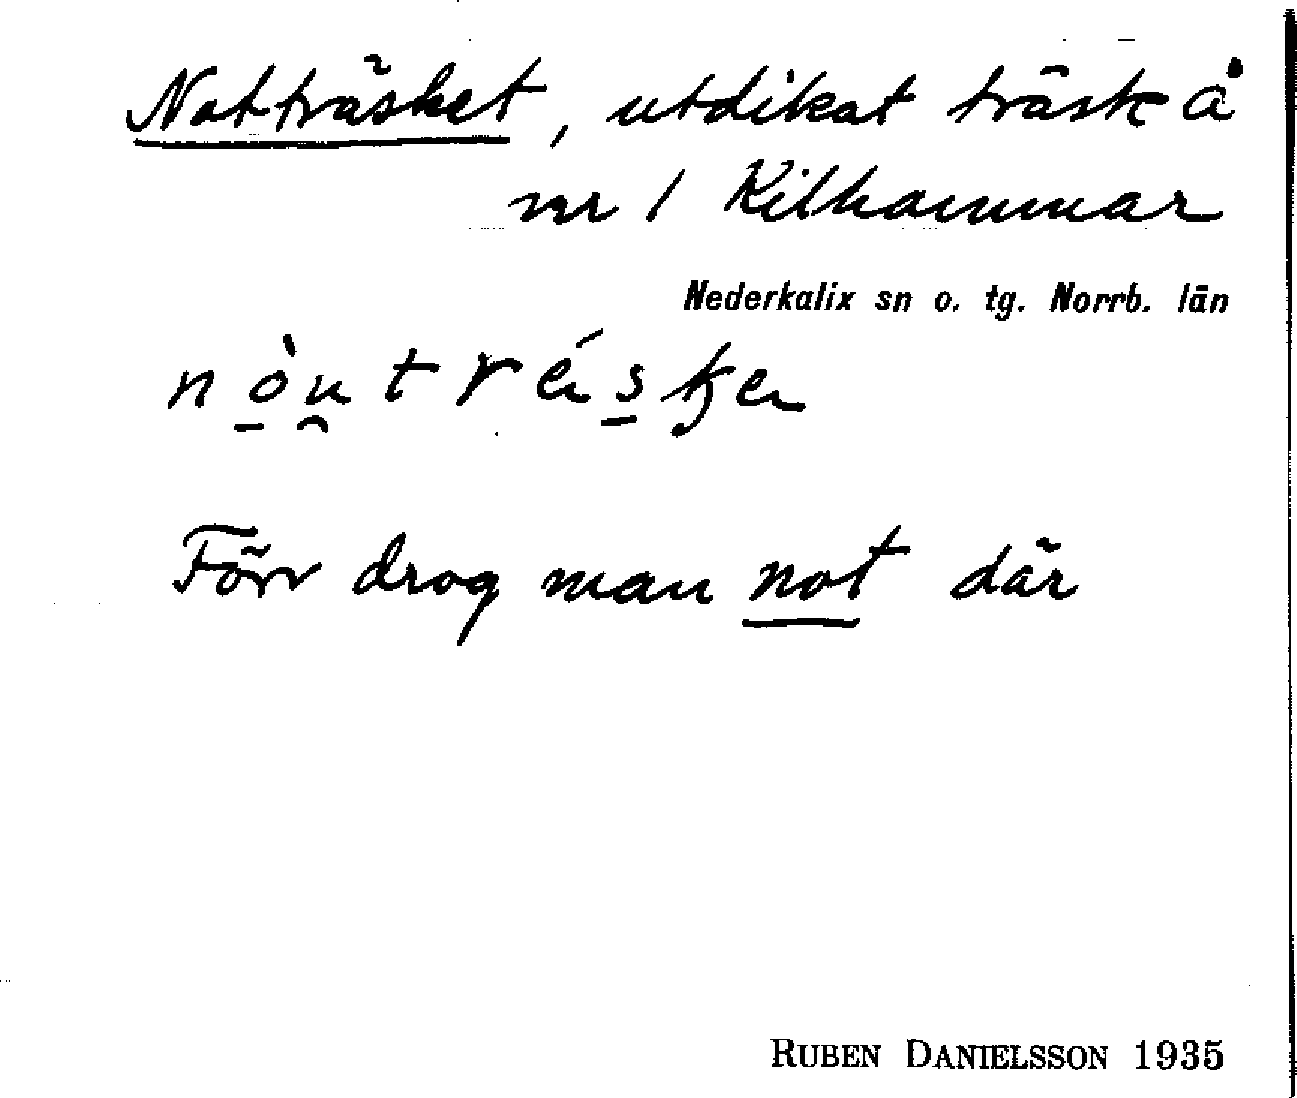 Notträsket, utdikat träsk å
nr 1 Kilhammar
Nederkalix sn o. tg. Norrb. län
nò̠u̯trés̠ꞣer
Förr drog man not där
RUBEN DANIELSSON 1935